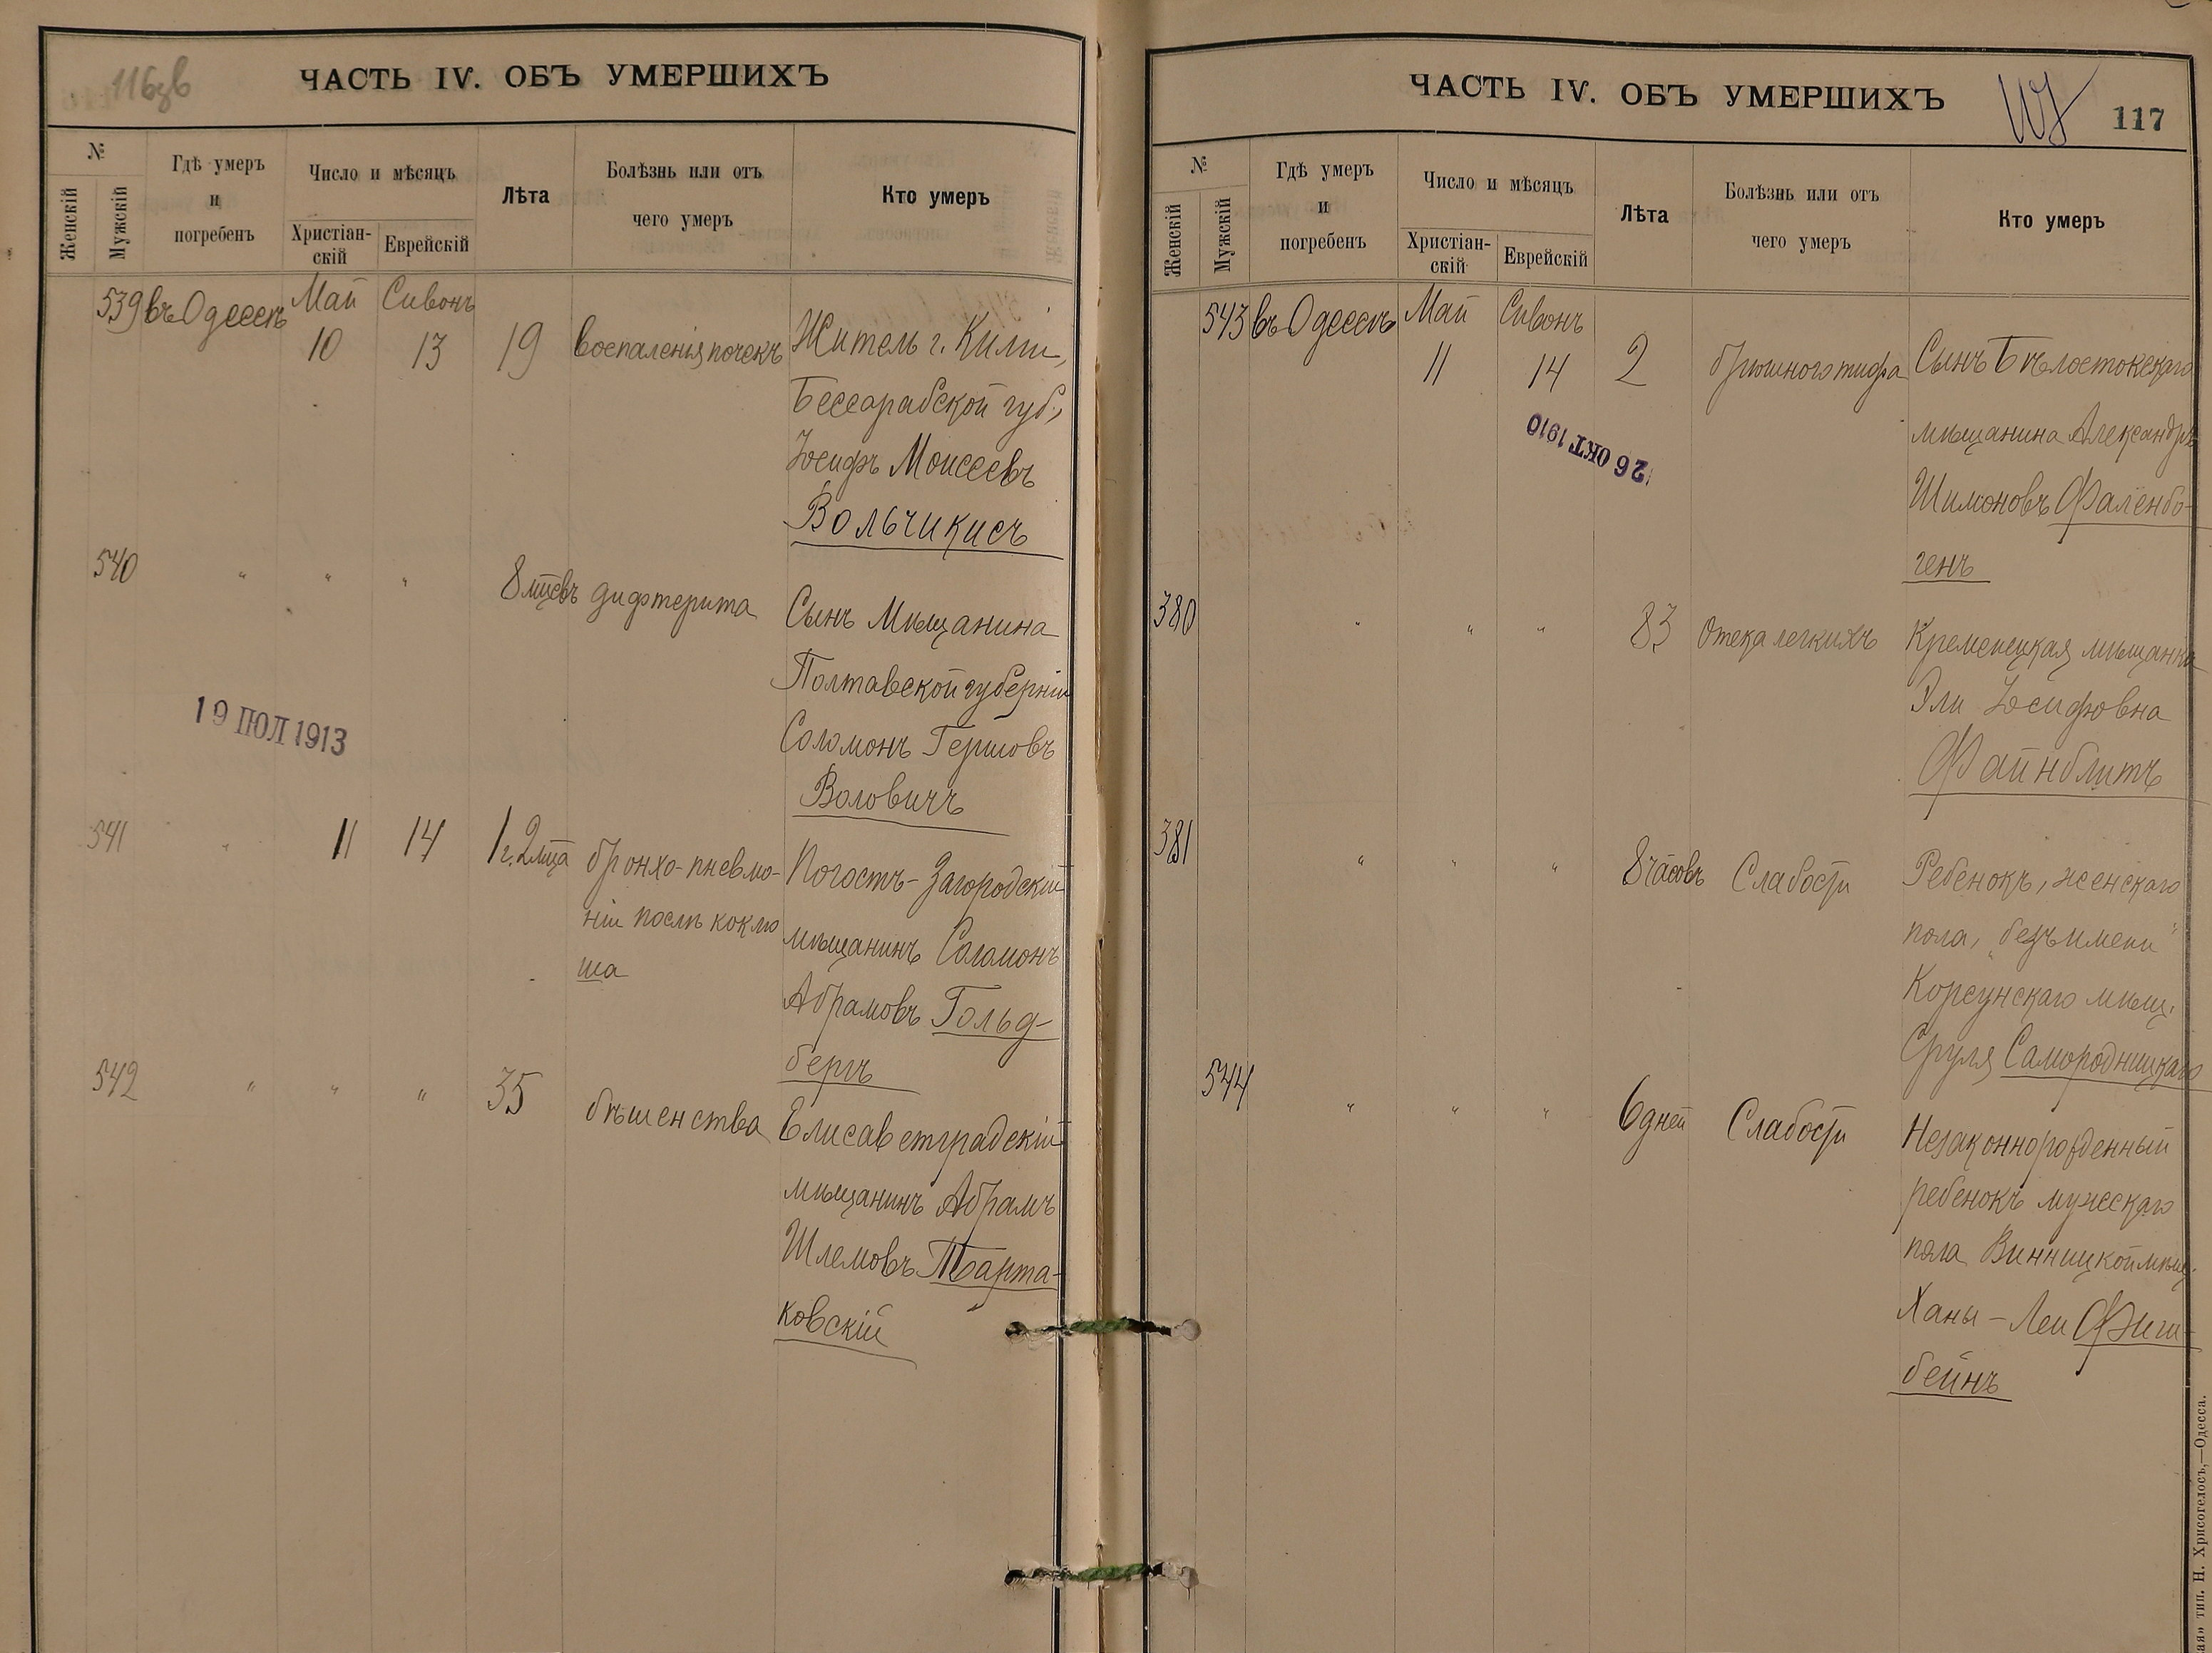 116зв
ЧАСТЬ IV. ОБЪ УМЕРШИХЪ
№
Женскій
Мужскій
Гдѣ умеръ
и
погребенъ
Число и мѣсяцъ
Христіан-
скій
Еврейскій
Лѣта
Болѣзнь или отъ
чего умеръ
Кто умеръ
539 въ Одессѣ Май Сивонъ
10 13 19 воспаленія почекъ Житель г. Киліи,
Бессарабской губ.,
Іосифъ Моисеевъ
Вольчикисъ
540 " " " 8 мцевъ дифтерита Сынъ Мѣщанина
Полтавской губерніи
Соломонъ Гершовъ
Воловичъ
19 ІЮЛ 1913
541 " 11 14 1 г. 2 мца бронхо-пневмо- Погостъ-Загородскій
ніи послѣ коклю мѣщанинъ Соломонъ
ша Абрамовъ Гольд-
бергъ
542 " " " 35 бѣшенства Елисаветградскій
мѣщанинъ Абрамъ
Шлемовъ Тарта-
ковскій
ЧАСТЬ IV. ОБЪ УМЕРШИХЪ
117
№
Женскій
Мужскій
Гдѣ умеръ
и
погребенъ
Число и мѣсяцъ
Христіан-
скій
Еврейскій
Лѣта
Болѣзнь или отъ
чего умеръ
Кто умеръ
543 въ Одессѣ Май Сивонъ
11 14 2 брюшного тифа Сынъ Бѣлостокскаго
мѣщанина Александръ
Шимоновъ Фаленбо-
генъ
26 ОКТ 1910
380 " " " 83 Отека легкихъ Кременецкая мѣщанка
Эли Іосифовна
Файнблитъ
381 " " " 8 часовъ Слабости Ребенокъ, женскаго
пола, "безъ имени"
Корсунскаго мѣщ.
Сруля Самородницкаго
544 " " " 6 дней Слабости Незаконнорожденный
ребенокъ мужескаго
пола Винницкой мѣщ.
Ханы-Леи Фиш-
бейнъ
тип. Н. Хрисогелосъ,—Одесса.